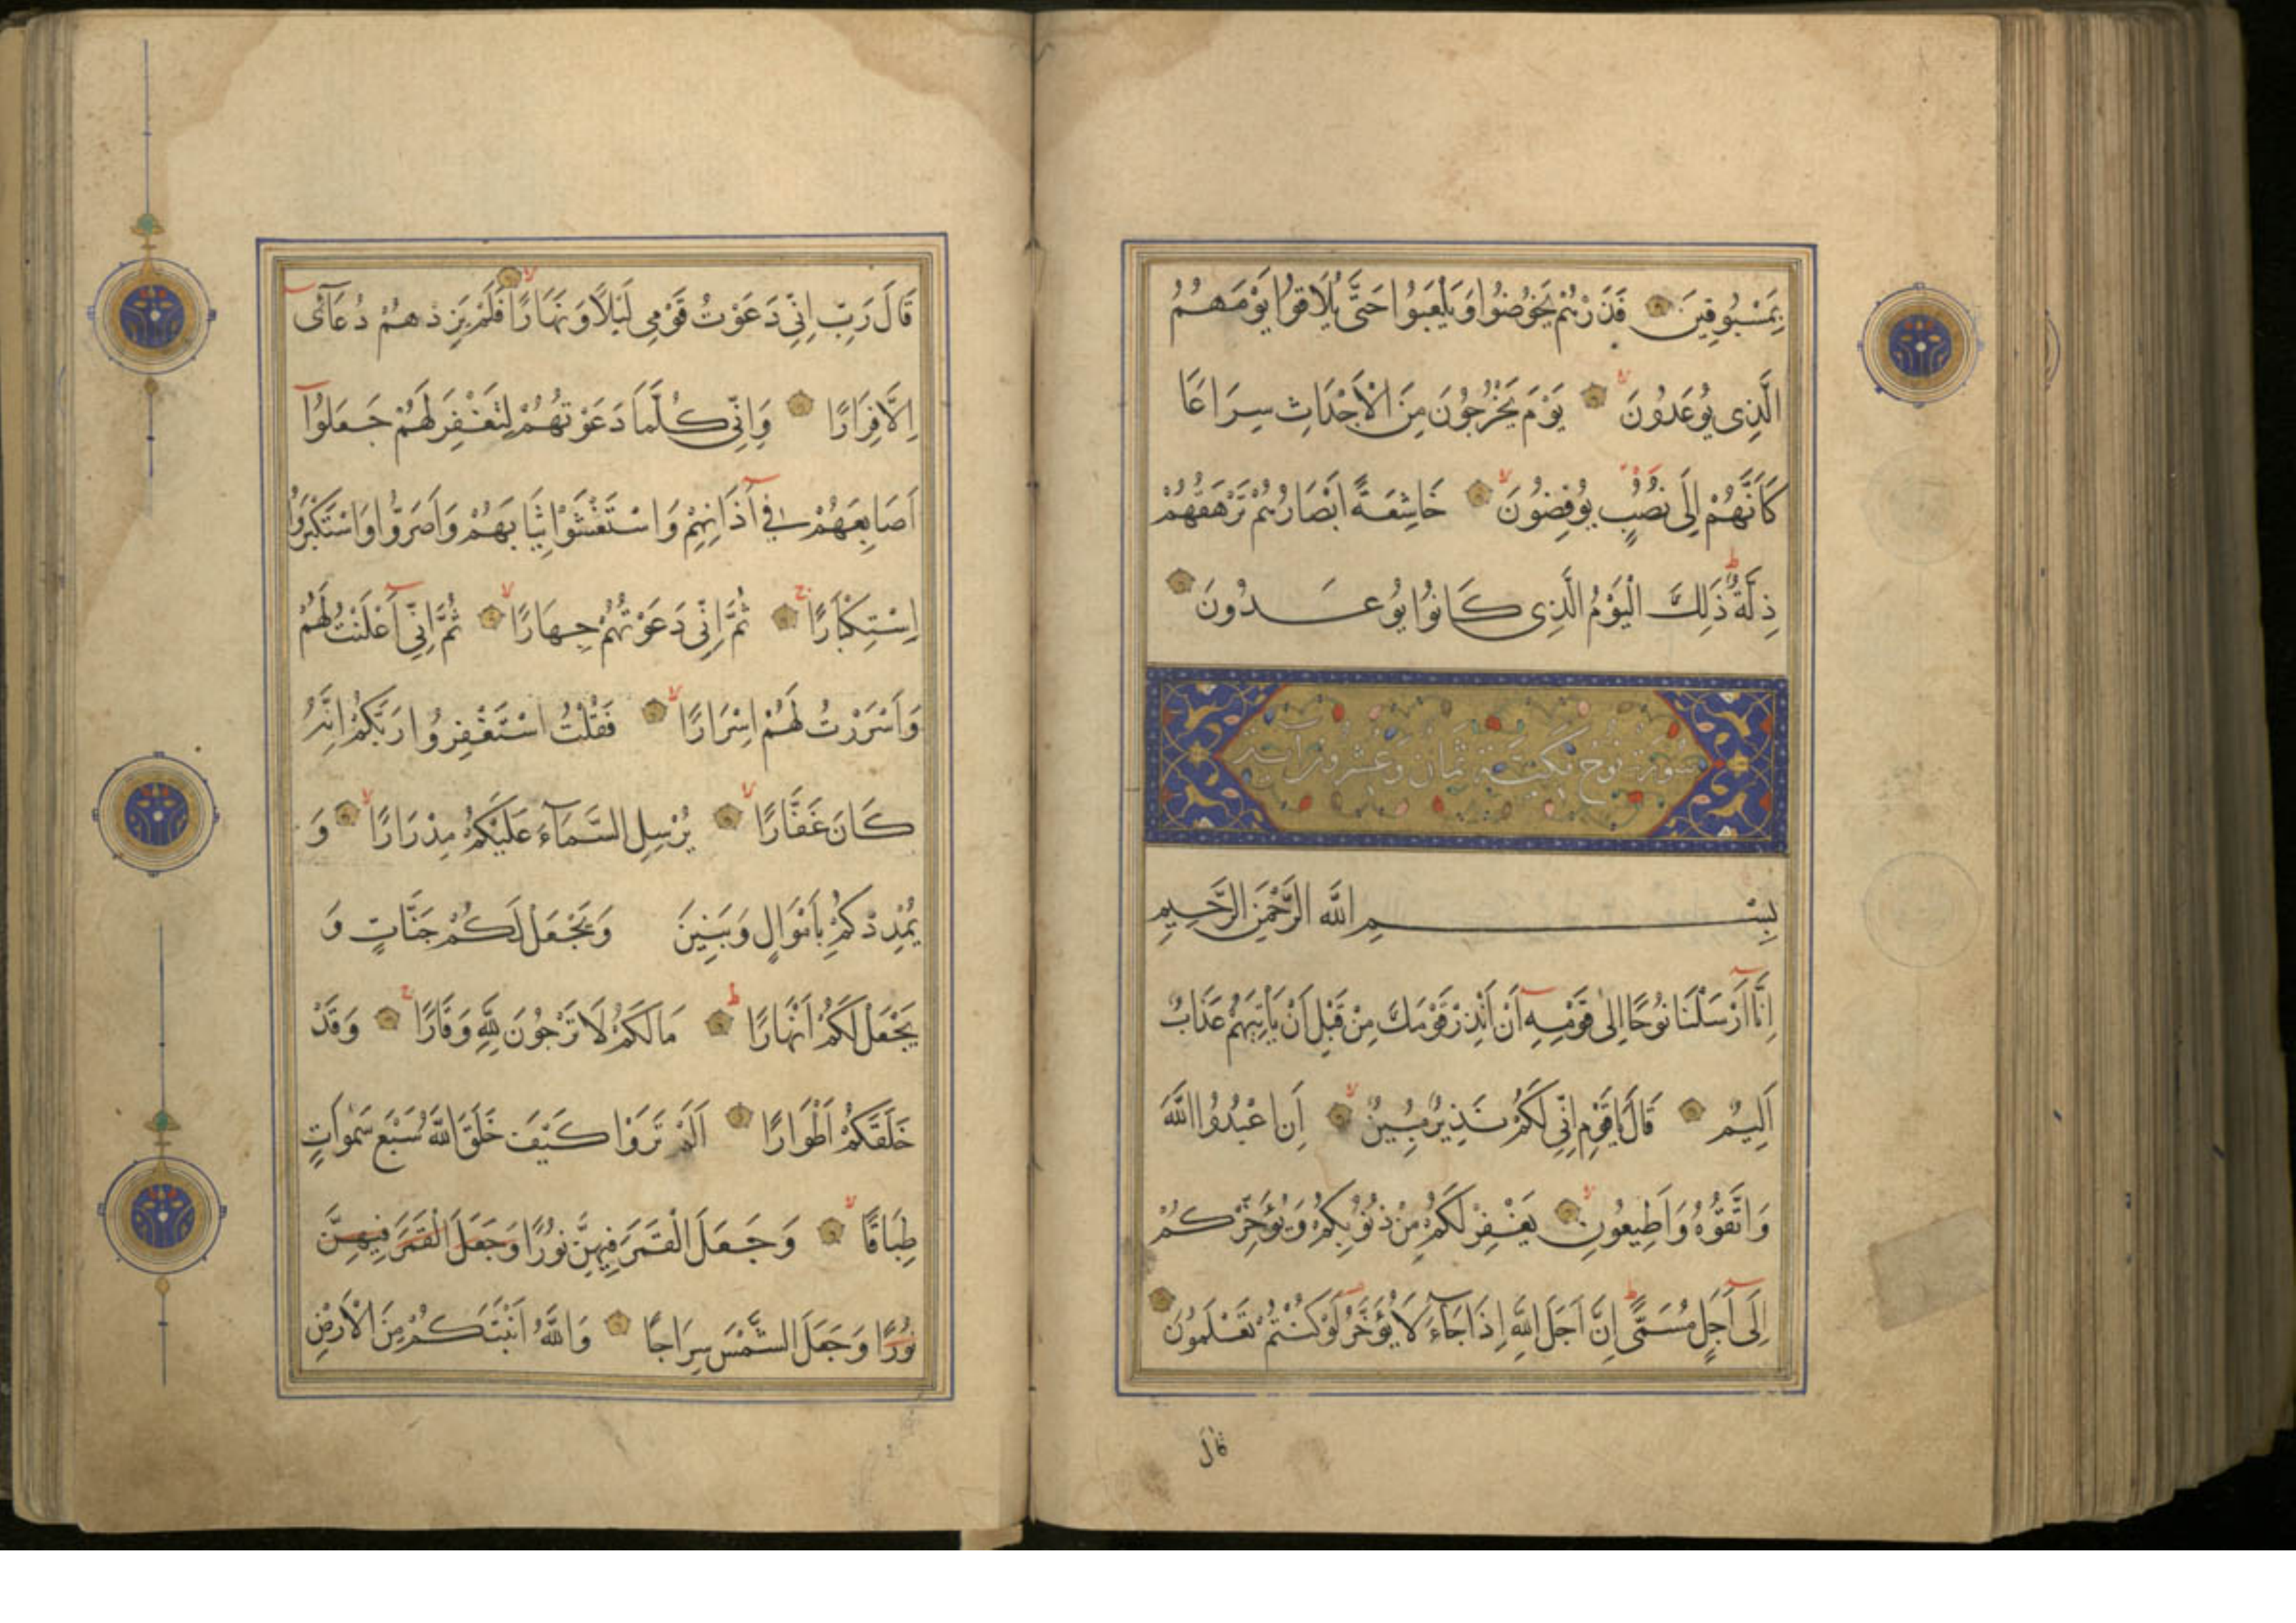 بِمَسْبُوقِينَ فَذَرْهُمْ يَخُوضُوا وَيَلْعَبُوا حَتَّى يُلَاقُوا يَوْمَهُمُ
الَّذِى يُوعَدُونَ يَوْمَ يَخْرُجُونَ مِنَ الْأَجْدَاثِ سِرَاعًا
كَأَنَّهُمْ إِلَى نُصُبٍ يُوفِضُونَ خَاشِعَةً أَبْصَارُهُمْ تَرْهَقُهُمْ
ذِلَّةٌ ذَلِكَ الْيَوْمُ الَّذِى كَانُوا يُوعَدُونَ
سورة نوح مكية ثمان وعشرون آية
بِسْمِ اللَّهِ الرَّحْمَنِ الرَّحِيمِ
إِنَّا أَرْسَلْنَا نُوحًا إِلَى قَوْمِهِ أَنْ أَنْذِرْ قَوْمَكَ مِنْ قَبْلِ أَنْ يَأْتِيَهُمْ عَذَابٌ
أَلِيمٌ قَالَ يَا قَوْمِ إِنِّي لَكُمْ نَذِيرٌ مُبِينٌ أَنِ اعْبُدُوا اللَّهَ
وَاتَّقُوهُ وَأَطِيعُونِ يَغْفِرْ لَكُمْ مِنْ ذُنُوبِكُمْ وَيُؤَخِّرْكُمْ
إِلَى أَجَلٍ مُسَمًّى إِنَّ أَجَلَ اللَّهِ إِذَا جَاءَ لَا يُؤَخَّرُ لَوْ كُنْتُمْ تَعْلَمُونَ
قال
قَالَ رَبِّ إِنِّي دَعَوْتُ قَوْمِي لَيْلًا وَنَهَارًا فَلَمْ يَزِدْهُمْ دُعَآئِى
إِلَّا فِرَارًا وَإِنِّي كُلَّمَا دَعَوْتُهُمْ لِتَغْفِرَ لَهُمْ جَعَلُوا
أَصَابِعَهُمْ فِي آذَانِهِمْ وَاسْتَغْشَوْا ثِيَابَهُمْ وَأَصَرُّوا وَاسْتَكْبَرُوا
اِسْتِكْبَارًا ثُمَّ إِنِّي دَعَوْتُهُمْ جِهَارًا ثُمَّ إِنِّي أَعْلَنْتُ لَهُمْ
وَأَسْرَرْتُ لَهُمْ إِسْرَارًا فَقُلْتُ اسْتَغْفِرُوا رَبَّكُمْ إِنَّهُ
كَانَ غَفَّارًا يُرْسِلِ السَّمَآءَ عَلَيْكُمْ مِدْرَارًا وَ
يُمْدِدْكُمْ بِأَمْوَالٍ وَبَنِينَ وَيَجْعَلْ لَكُمْ جَنَّاتٍ وَ
يَجْعَلْ لَكُمْ أَنْهَارًا مَا لَكُمْ لَا تَرْجُونَ لِلَّهِ وَقَارًا وَقَدْ
خَلَقَكُمْ أَطْوَارًا أَلَمْ تَرَوْا كَيْفَ خَلَقَ اللَّهُ سَبْعَ سَمٰوَاتٍ
طِبَاقًا وَجَعَلَ الْقَمَرَ فِيهِنَّ نُورًا وَجَعَلَ الْقَمَرَ فِيهِنَّ
نُورًا وَجَعَلَ الشَّمْسَ سِرَاجًا وَاللَّهُ أَنْبَتَكُمْ مِنَ الْأَرْضِ